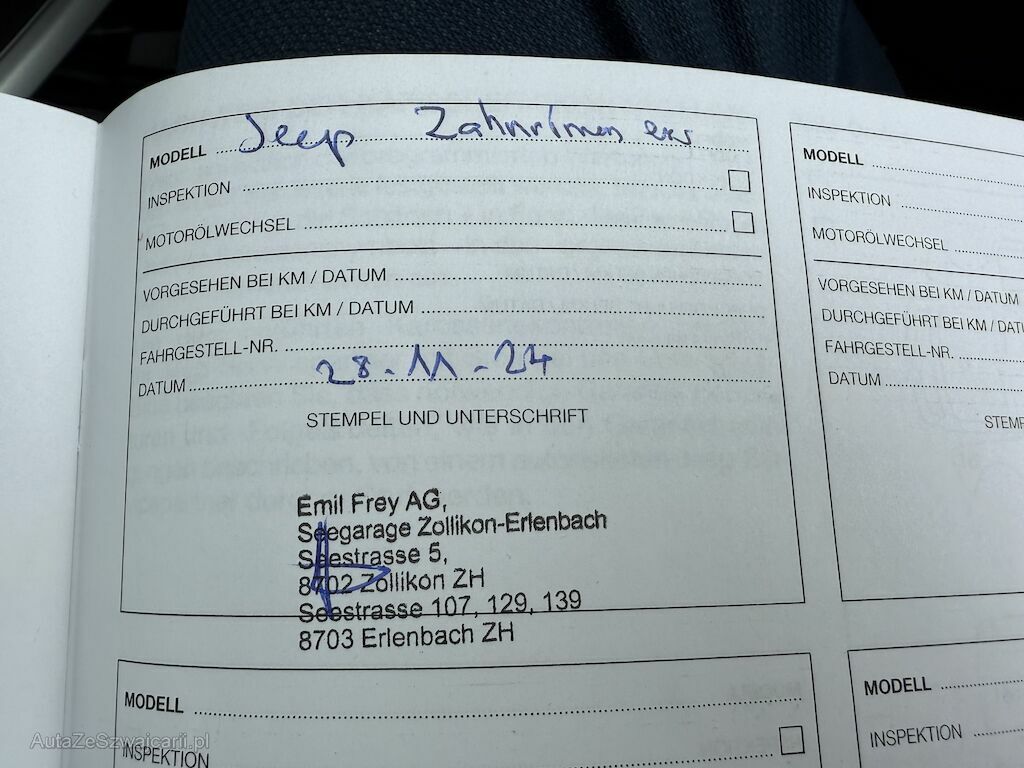 MODELL Jeep Zahnriemen ers
INSPEKTION
MOTORÖLWECHSEL
VORGESEHEN BEI KM / DATUM
DURCHGEFÜHRT BEI KM / DATUM
FAHRGESTELL-NR.
DATUM 28.11.24
STEMPEL UND UNTERSCHRIFT
Emil Frey AG,
Seegarage Zollikon-Erlenbach
Seestrasse 5,
8702 Zollikon ZH
Seestrasse 107, 129, 139
8703 Erlenbach ZH
MODELL
INSPEKTION
MOTORÖLWECHSEL
VORGESEHEN BEI KM / DATUM
DURCHGEFÜHRT BEI KM / DATU
FAHRGESTELL-NR.
DATUM
STEMP
MODELL
INSPEKTION
MODELL
INSPEKTION
AutaZeSzwajcarii.pl